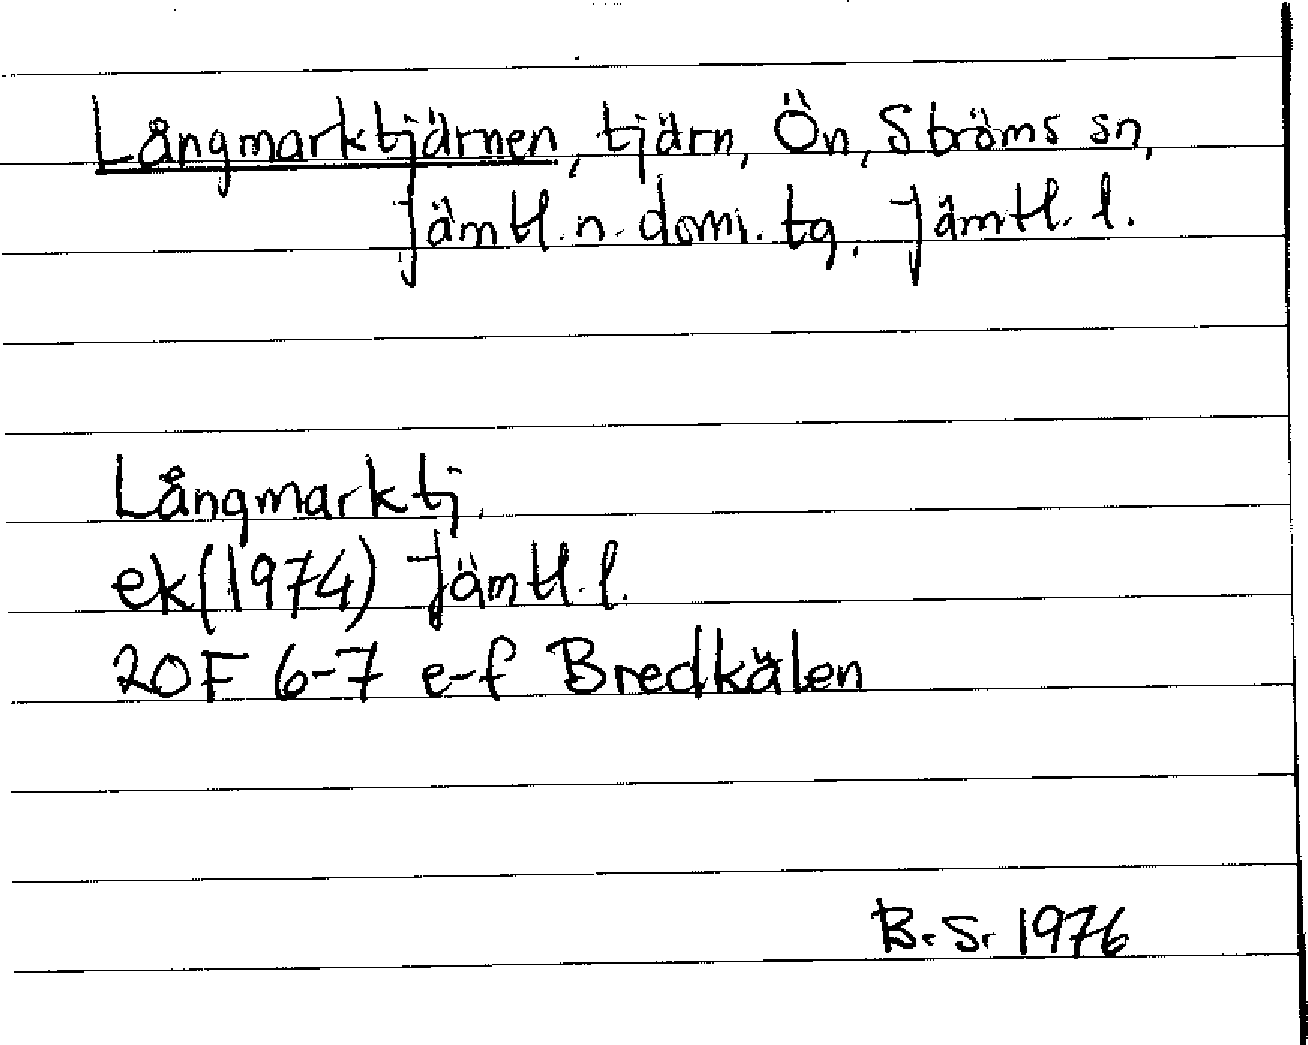 Långmarktjärnen, tjärn, Ön, Ströms sn,
Jämtl. n. doms. tg. Jämtl. l.
Långmarktj.
ek(1974) Jämtl. l.
20F 6-7 e-f Bredkälen
B. S. 1976